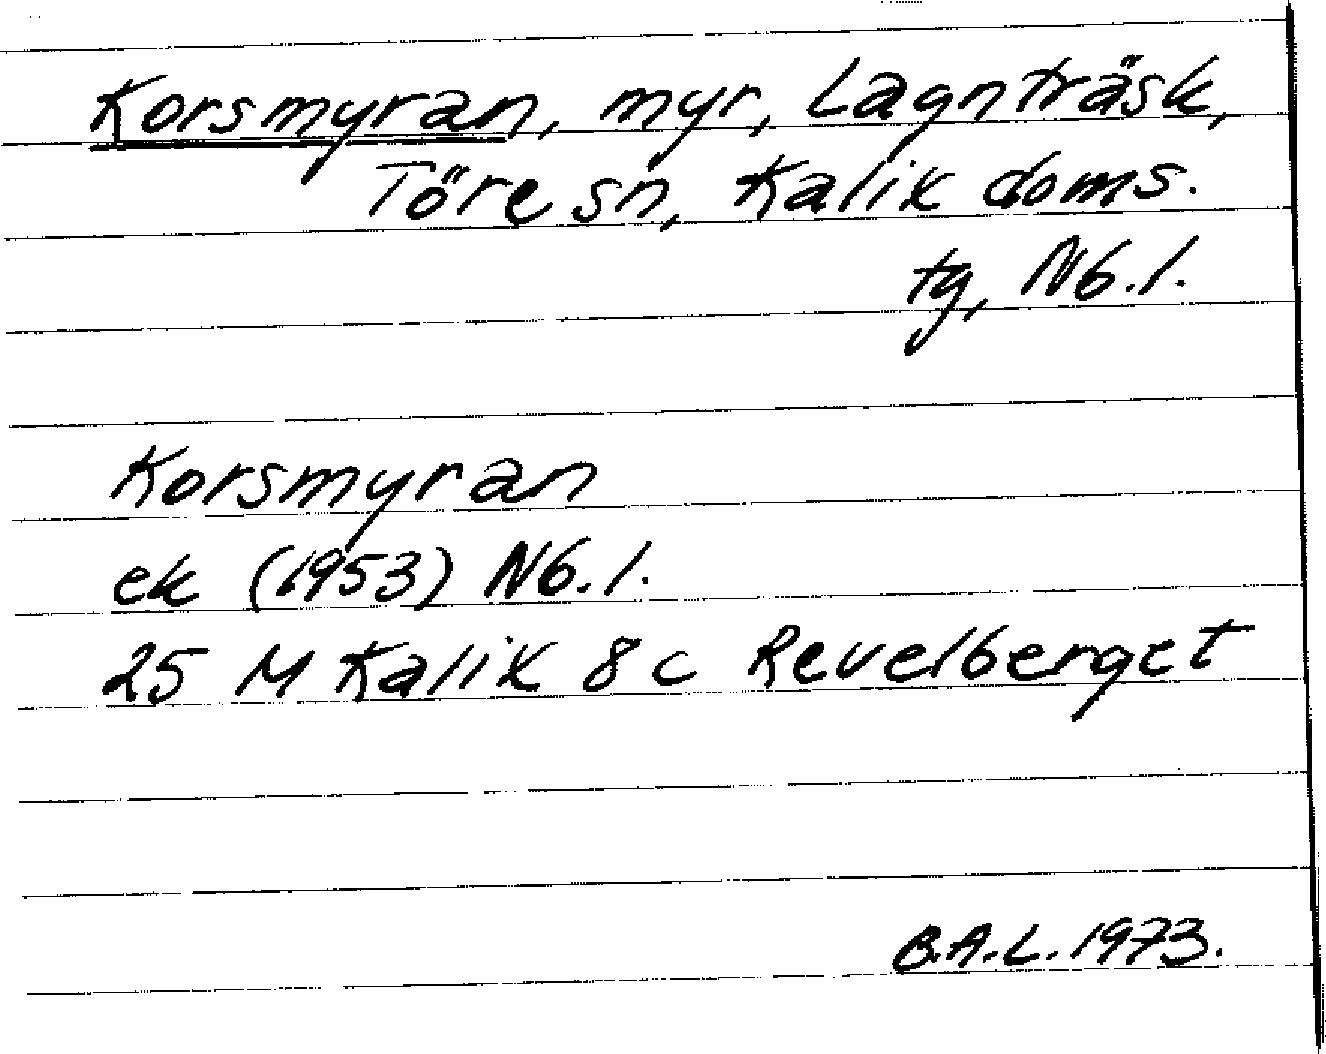 Korsmyran, myr, Lagnträsk,
Töre sn, Kalix doms.
tg, Nb.l.
Korsmyran
ek (1953) Nb.l.
25 M Kalix 8c Revelberget
B.A.L. 1973.